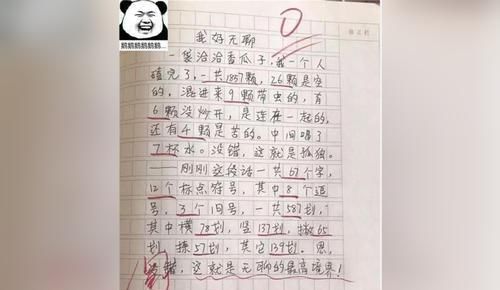 鹅鹅鹅鹅鹅鹅....
0
我好无聊
一袋洽洽香瓜子,我一个人
嗑完了,一共1857颗,26颗是空
的,混进来9颗带虫的,有
6颗没炒开,是连在一起的,
还有4颗是苦的。中间喝了
7杯水。没错,这就是孤独。
——刚刚这段话一共67个字,
12个标点符号,其中8个逗
号,3个句号,一共587划,
其中横78划,竖137划,撇65
划,捺57划,其它139划。恩,
没错,这就是无聊的最高境界!
阅